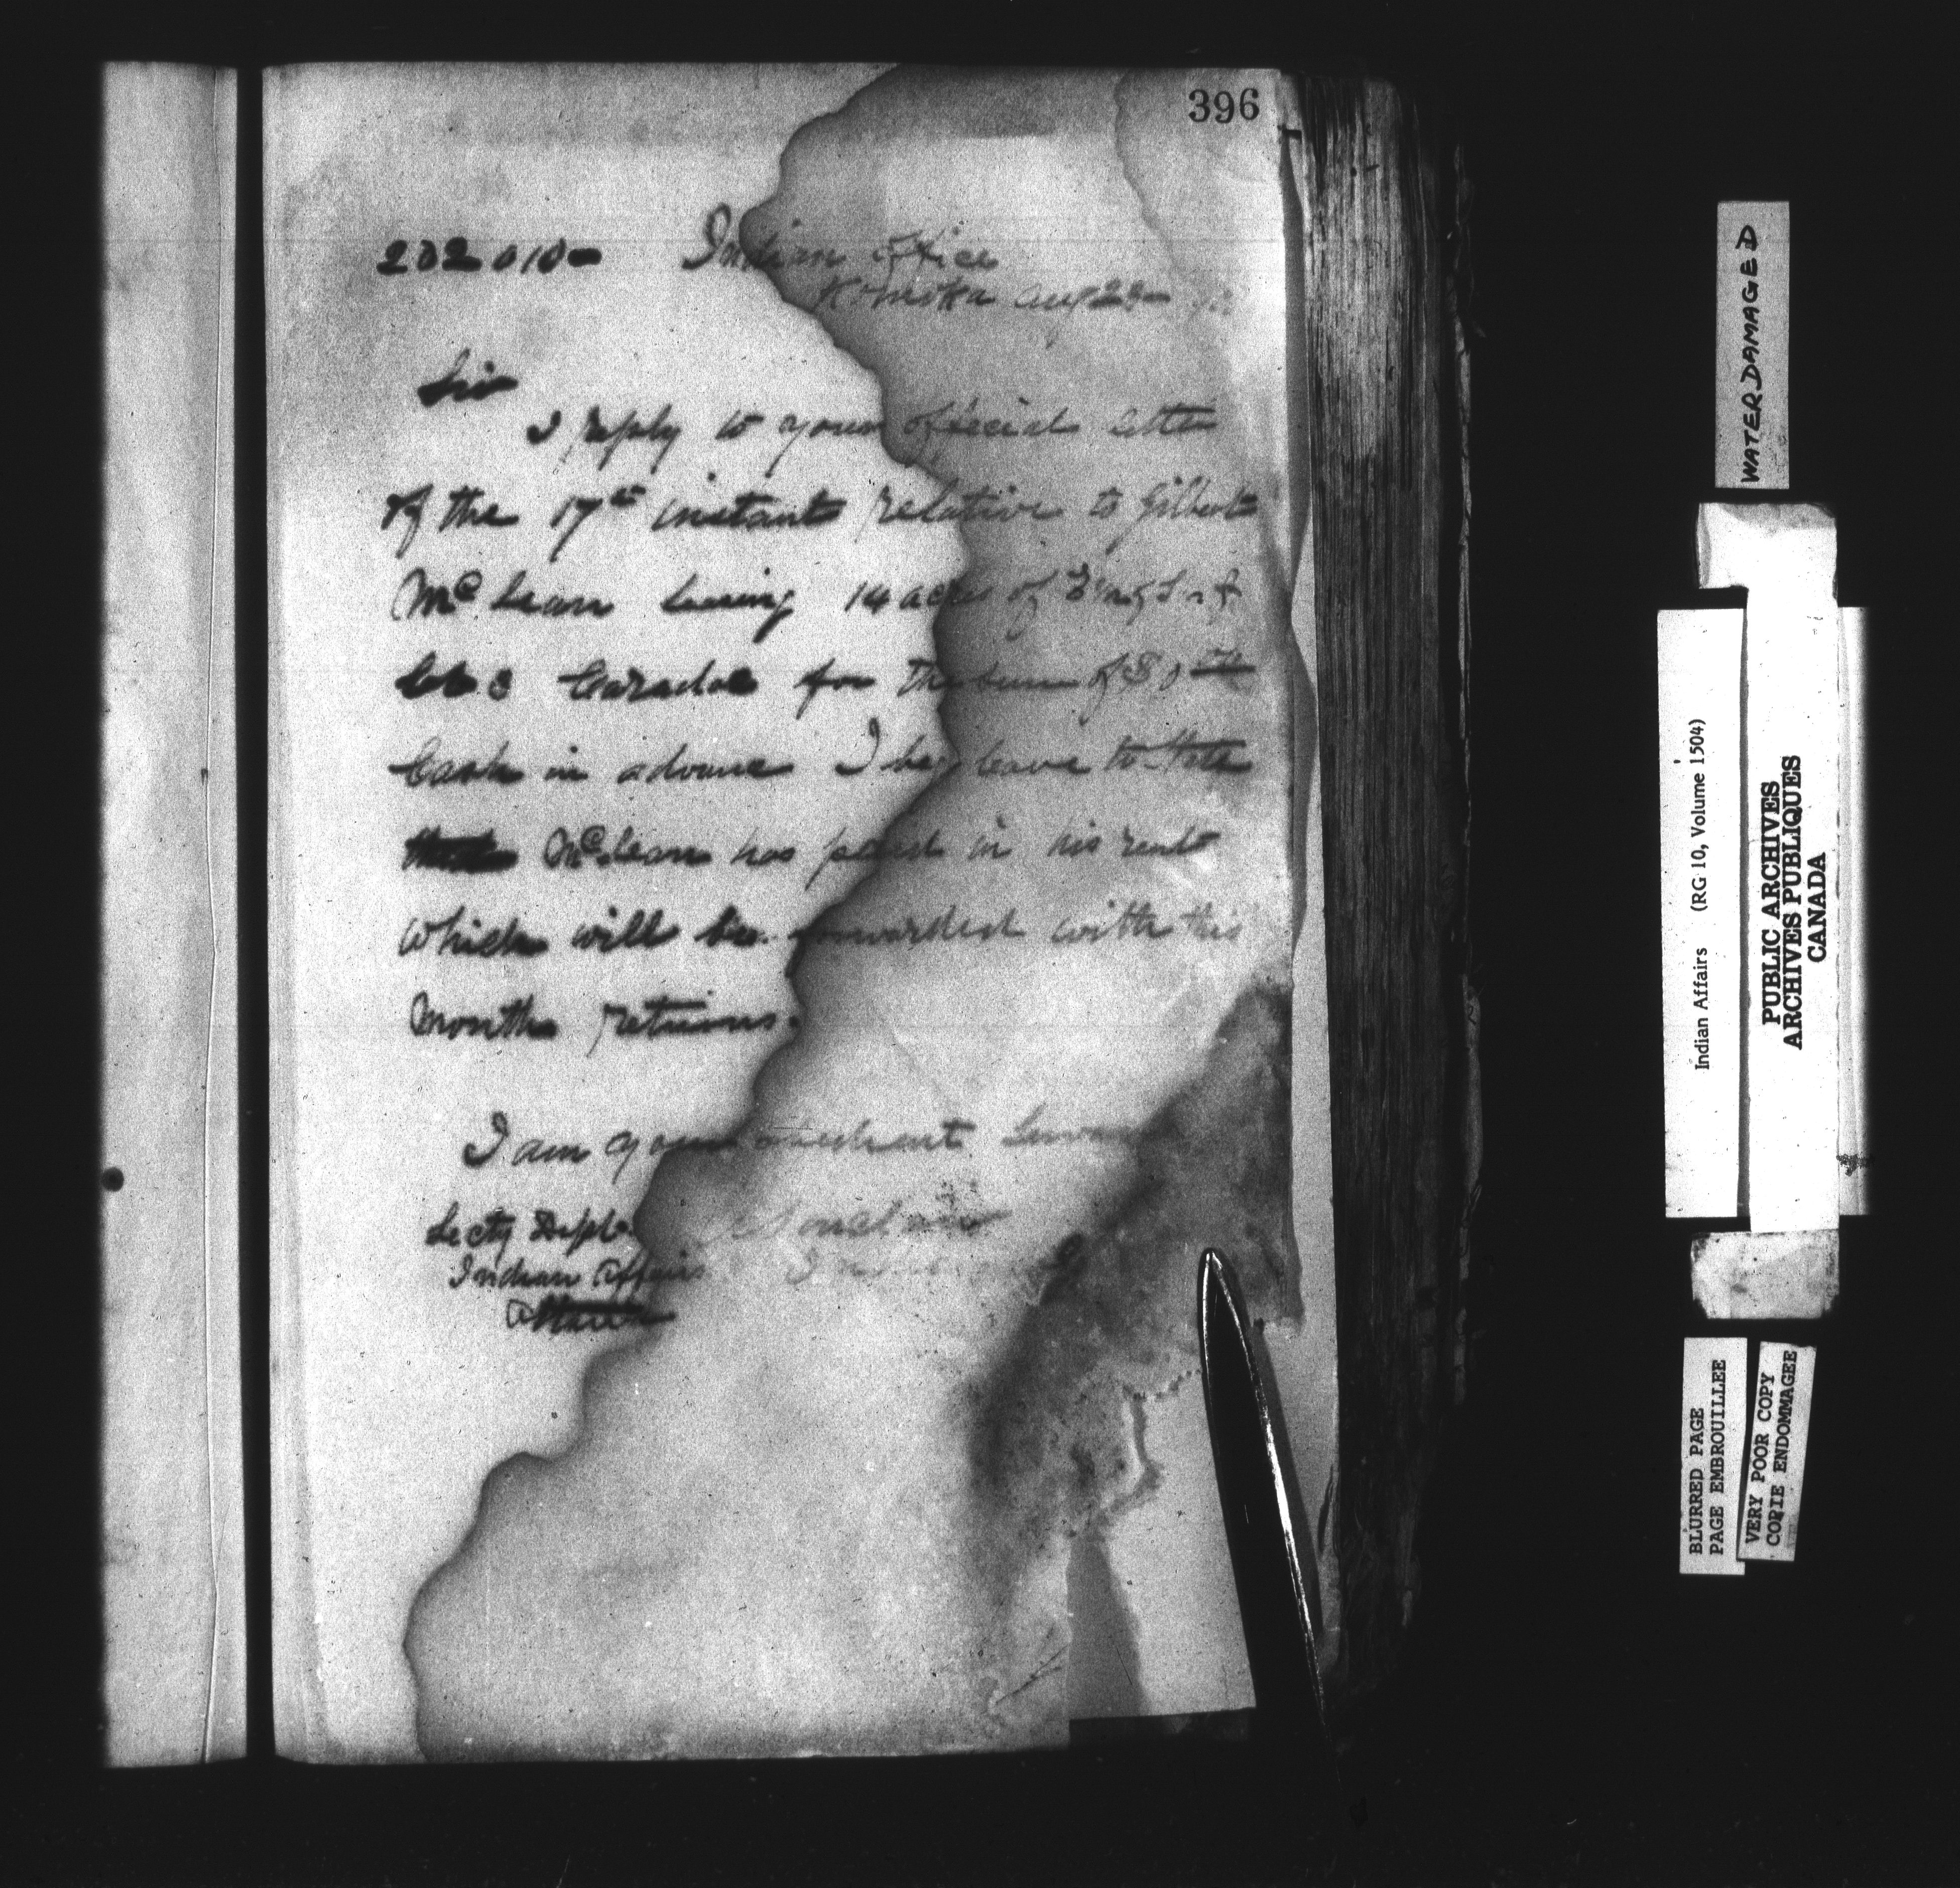 396
202010- Indian Office
Komoka Aug 22-
Sir
I reply to your official letter
of the 17th instant relative to Gilbert
McLean leasing 14 acres of
Caradoc for the sum of
Cash in advance I beg leave to state
that McLean has paid in his rent
which will be forwarded with this
months returns.
I am your obedient Servant
Secty Dept
Indian Affairs
Ottawa
WATER DAMAGED
Indian Affairs (RG 10, Volume 1504)
PUBLIC ARCHIVES
ARCHIVES PUBLIQUES
CANADA
BLURRED PAGE
PAGE EMBROUILLEE
VERY POOR COPY
COPIE ENDOMMAGEE